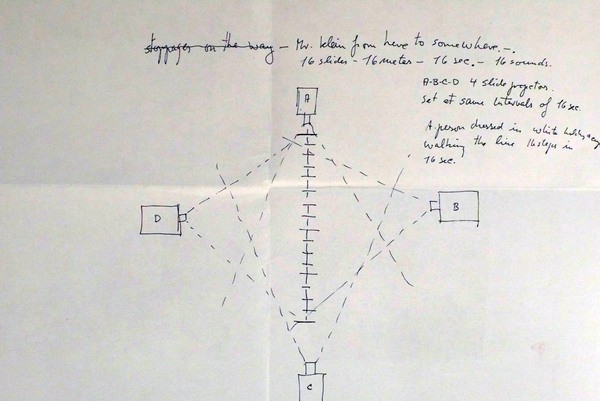 stoppages on the way – Mr. Klein from here to somewhere. –.
16 slides – 16 meter – 16 sec. – 16 sounds.
A-B-C-D 4 slide projector.
set at same intervals of 16 sec.
A person dressed in white
walking the line 16 steps in
16 sec.
A
D
B
C